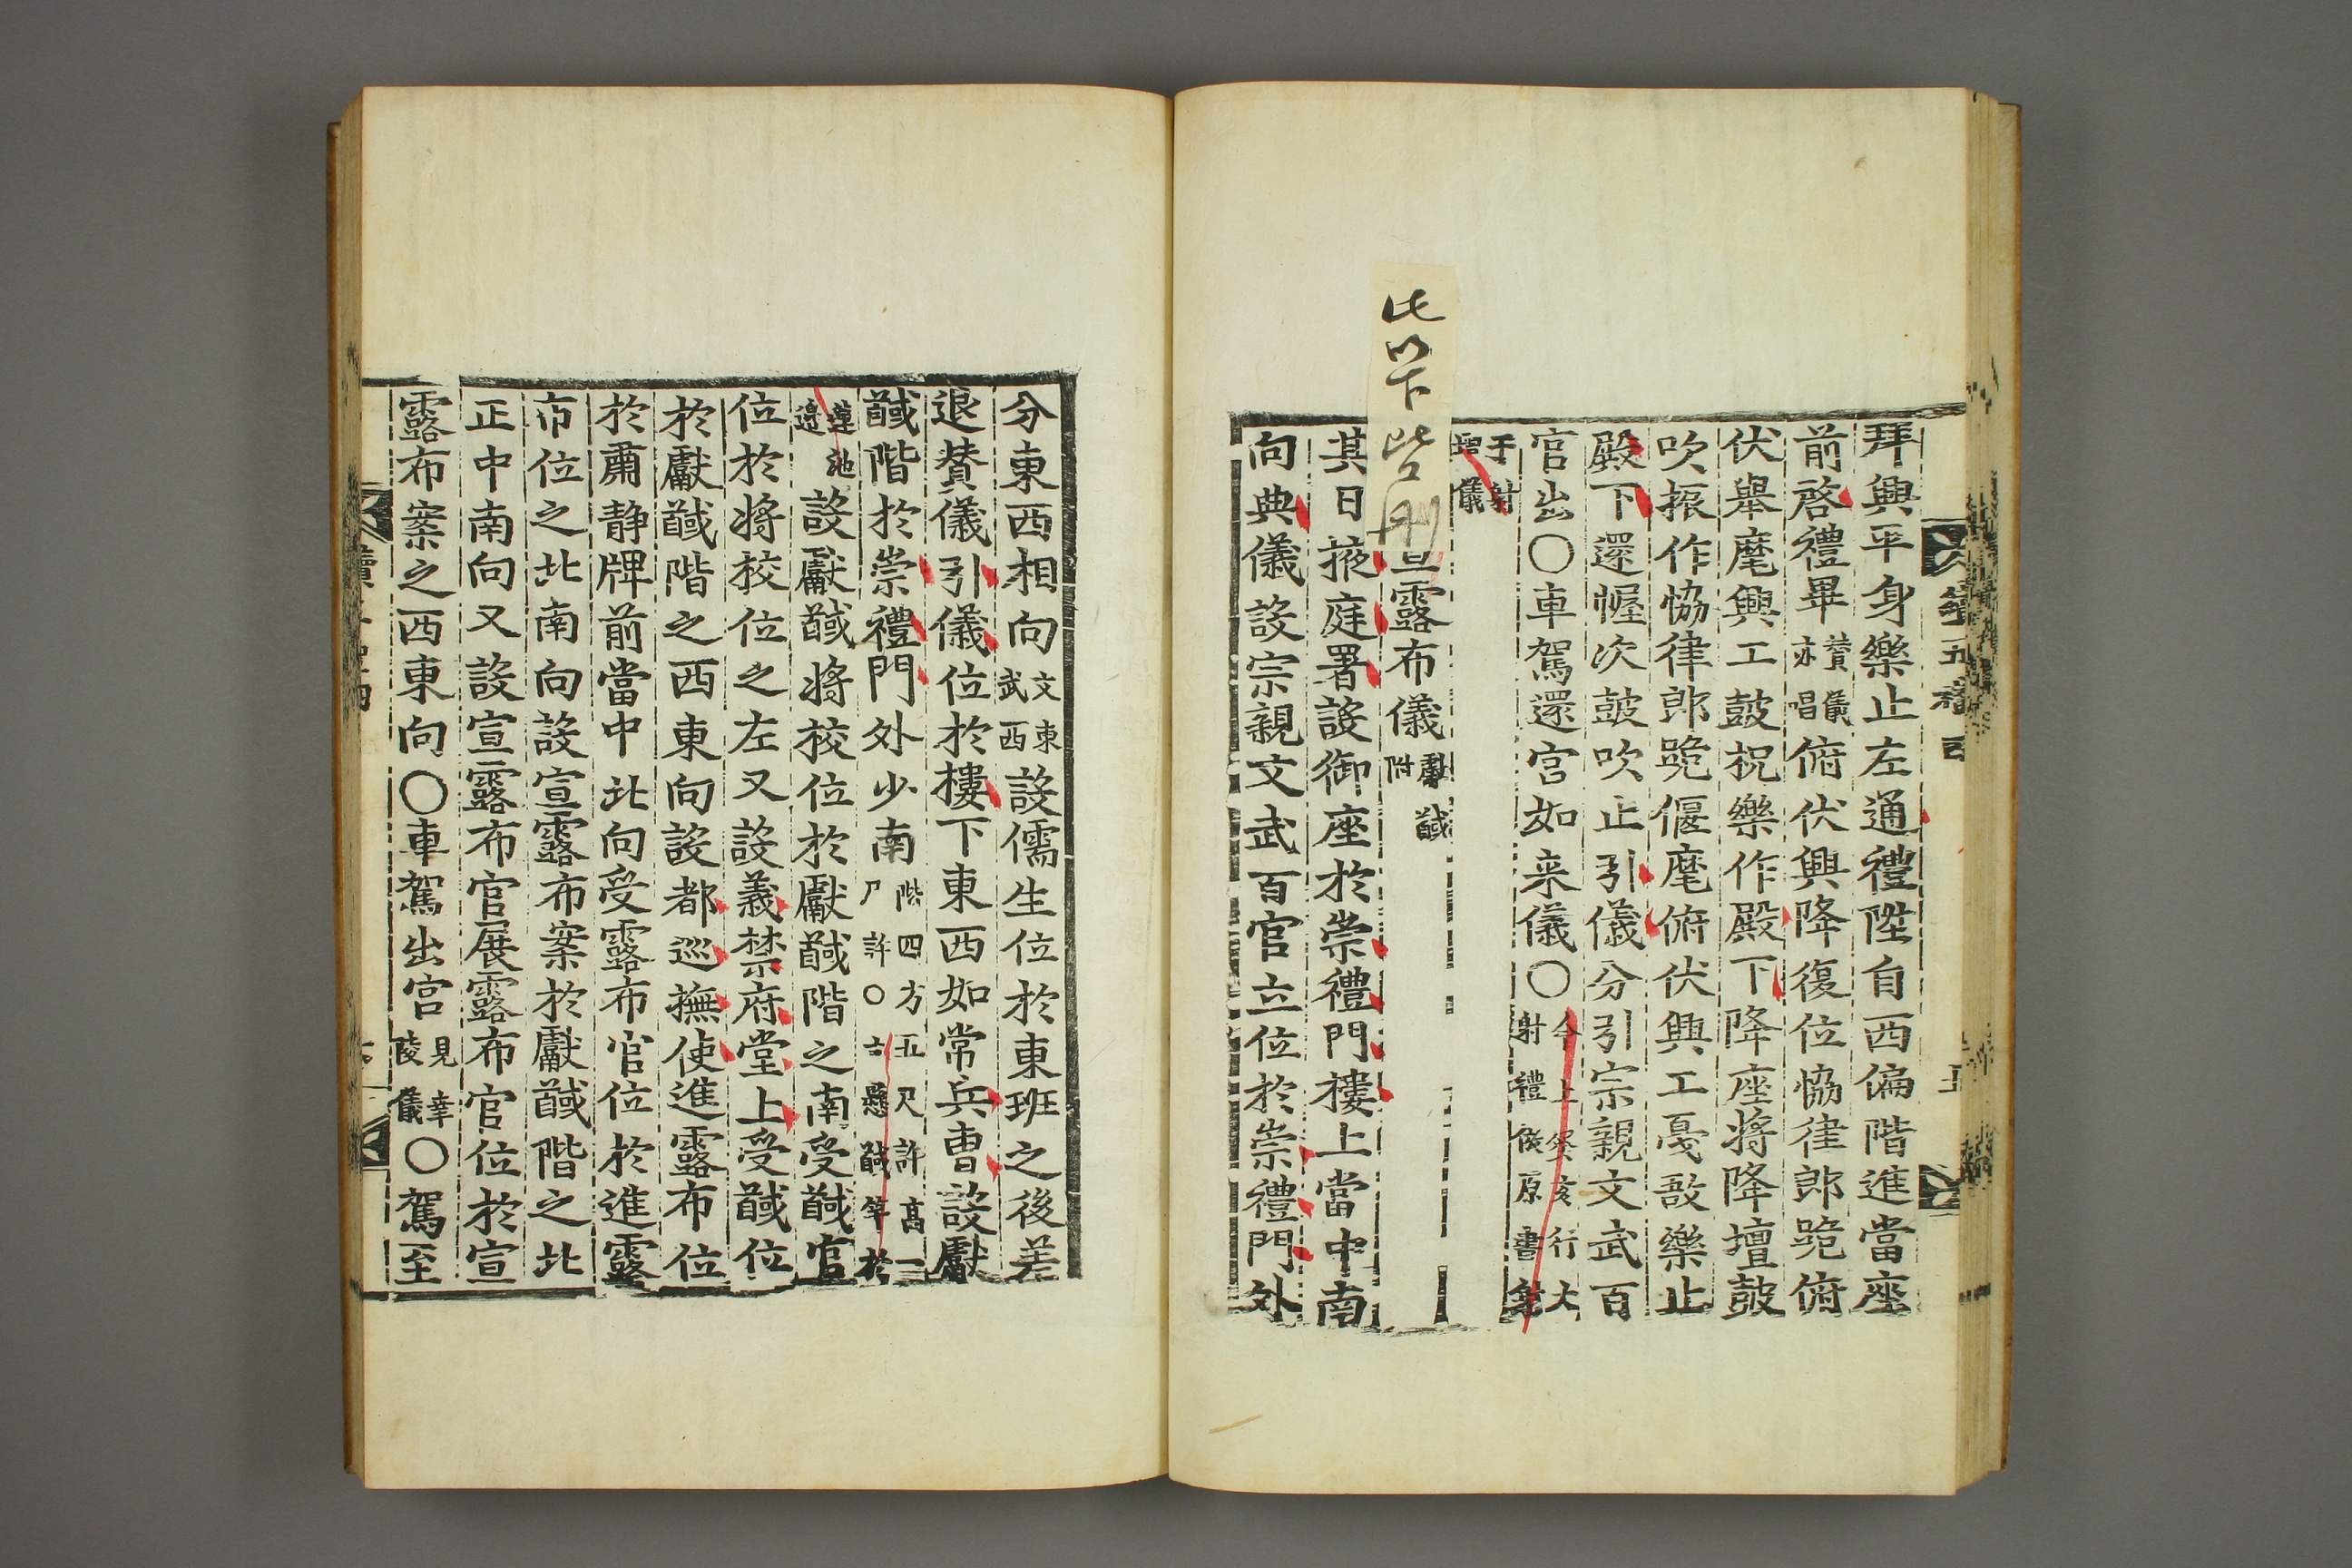 拜興平身樂止左通禮陞自西偏階進當座
前啓禮畢贊儀亦唱俯伏興降復位協律郎跪俯
伏擧麾興工鼓柷樂作殿下降座將降壇鼓
吹振作協律郎跪偃麾俯伏興工戞敔樂止
殿下還幄次鼓吹止引儀分引宗親文武百
官出〇車駕還宮如來儀〇今上癸亥行大射禮儀原書射
于射壇儀
此以下皆刪
宣露布儀獻馘附
其日掖庭署設御座於崇禮門樓上當中南
向典儀設宗親文武百官立位於崇禮門外
分東西相向文東武西設儒生位於東班之後差
退贊儀引儀位於樓下東西如常兵曹設獻
馘階於崇禮門外少南階四方五尺許高一尺許〇古懸馘竿於
蓮池邊設獻馘將校位於獻馘階之南受馘官
位於將校位之左又設義禁府堂上受馘位
於獻馘階之西東向設都巡撫使進露布位
於肅靜牌前當中北向受露布官位於進露
布位之北南向設宣露布案於獻馘階之北
正中南向又設宣露布官展露布官位於宣
露布案之西東向〇車駕出宮見幸陵儀〇駕至